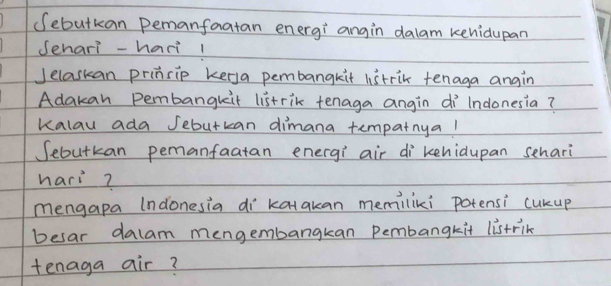 Sebutkan pemanfaatan energi angin dalam kehidupan
Sehari - hari !
Jelaskan prinsip kerja pembangkit listrik tenaga angin
Adakah pembangkit listrik tenaga angin di Indonesia ?
Kalau ada Sebutkan dimana tempatnya !
Sebutkan pemanfaatan energi air di kehidupan sehari
hari ?
mengapa Indonesia di katakan memiliki potensi cukup
besar dalam mengembangkan pembangkit listrik
tenaga air ?